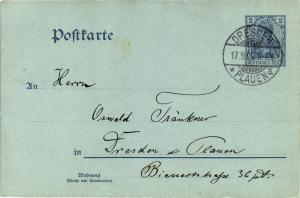 Postkarte
2
DEUTSCHES REICH
DRESDEN
17.9.
* PLAUEN *
An Herrn
Oswald Fränkner
in Dresden Plauen
Bienertstraße 36 pt.
Wohnung
(Straße und Hausnummer)